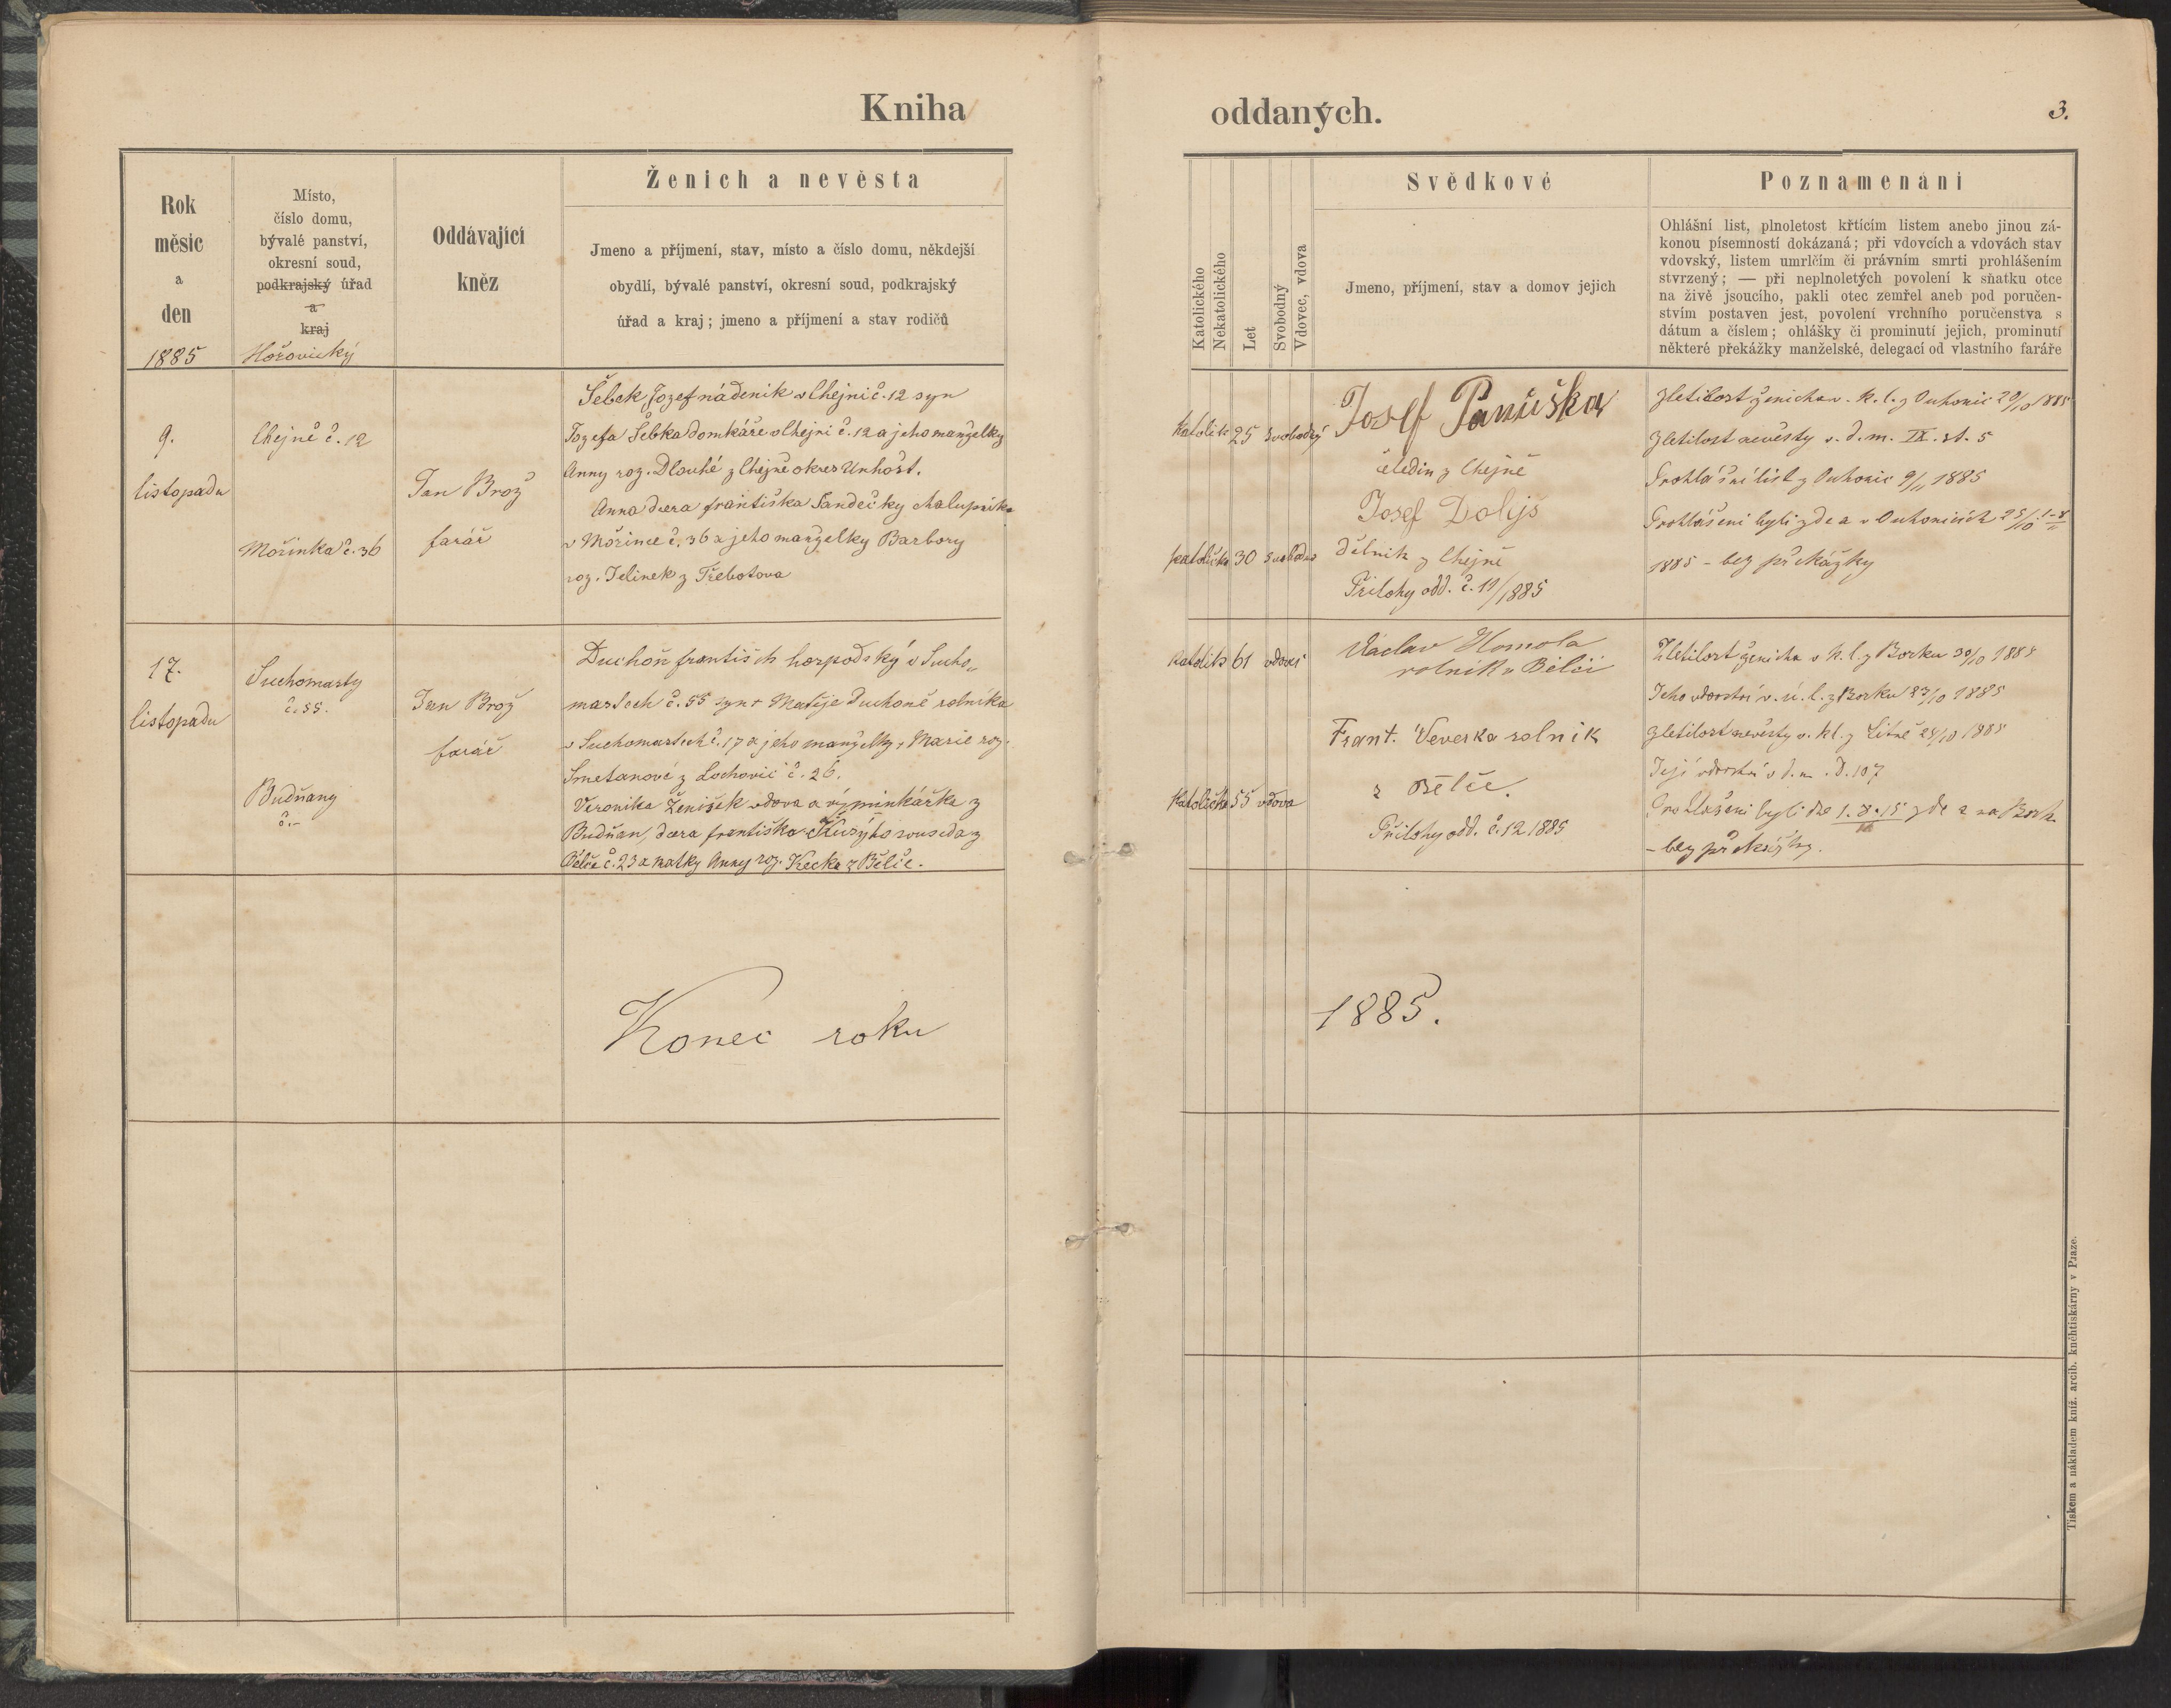 Kniha
Rok
měsíc
a
den
1885
Místo,
číslo domu,
bývalé panství,
okresní soud,
podkrajský úřad
a
kraj
Hořovický
Oddávající
kněz
Ženich a nevěsta
Jmeno a příjmení, stav, místo a číslo domu, někdejší
obydlí, bývalé panství, okresní soud, podkrajský
úřad a kraj; jmeno a příjmení a stav rodičů
9.
listopadu
Chejně č. 12
Mořinka č. 36
Jan Brož
farář
Šebek Jozef nádenik v Chejni č. 12 syn
Jozefa Šebka domkáře v Chejni č. 12 a jeho manželky
Anny roz. Dlouhé z Chejně okres Unhošt.
Anna dcera františka Sandečky chalupnika
v Mořince č. 36 a jeho manželky Barbory
roz. Jelinek z Třebotova
17.
listopadu
Suchomasty
č. 55.
Budňany
č. –
Jan Brož
farář
Duchoň františch hospodský v Sucho„
mastech č. 55 syn + Matěje Duchoně rolníka
v Suchomastech č. 17 a jeho manželky + Marie roz.
Smetanové z Lochovic č. 26.
Veronika Ženišek vdova a výminkářka z
Budňan, dcera františka Kuzýho souseda z
Bělče č. 23 a matky Anny roz. Kecka z Bělče.
Konec roku
oddaných.
3.
Katolického
Nekatolického
Let
Svobodný
Vdovec, vdova
Svědkové
Jmeno, příjmení, stav a domov jejich
Poznamenání
Ohlášní list, plnoletost křticím listem anebo jinou zá-
konou písemností dokázaná; při vdovcích a vdovách stav
vdovský, listem umrlčím či právním smrti prohlášením
stvrzený; — při neplnoletých povolení k sňatku otce
na živě jsoucího, pakli otec zemřel aneb pod poručen-
stvím postaven jest, povolení vrchního poručenstva s
dátum a číslem; ohlášky či prominutí jejich, prominutí
některé překážky manželské, delegací od vlastního faráře
Katolik 25 svobodný
katolička 30 svobodna
Josef Panuška
čeledin z Chejně
Josef Dolejs
dělnik z Chejně
Přilohy odd. č. 11/1885
Zletilost ženicha v. k. l. z Ouhonic 20/10 1885
Zletilost nevěsty v. d. m. IX. st. 5
Prohlášní list z Ouhonic 9/11 1885
Prohlášeni byli zde a v Ouhonicích 25/10 1–8/11
1885 – bez překážky
Katolik 61 vdovec
Katolička 55 vdova
Václav Homola
rolník v Bělči
Frant. Veverka rolnik
z Bělče.
Přilohy odd. č. 12 1885
Zletilost ženicha v k. l. z Borku 30/10 1885
Jeho vdovství v. ú. l. z Borku 23/10 1885
Zletilost nevěsty v. kl. z Litně 25/10 1885
Její vdovství v d. m. D. 107
Prohlašeni byli dne 1. 8. 15 zde a na Bork.
– bez překážky.
1885.
Tiskem a nákladem kníž. arcib. knihtiskárny v Praze.